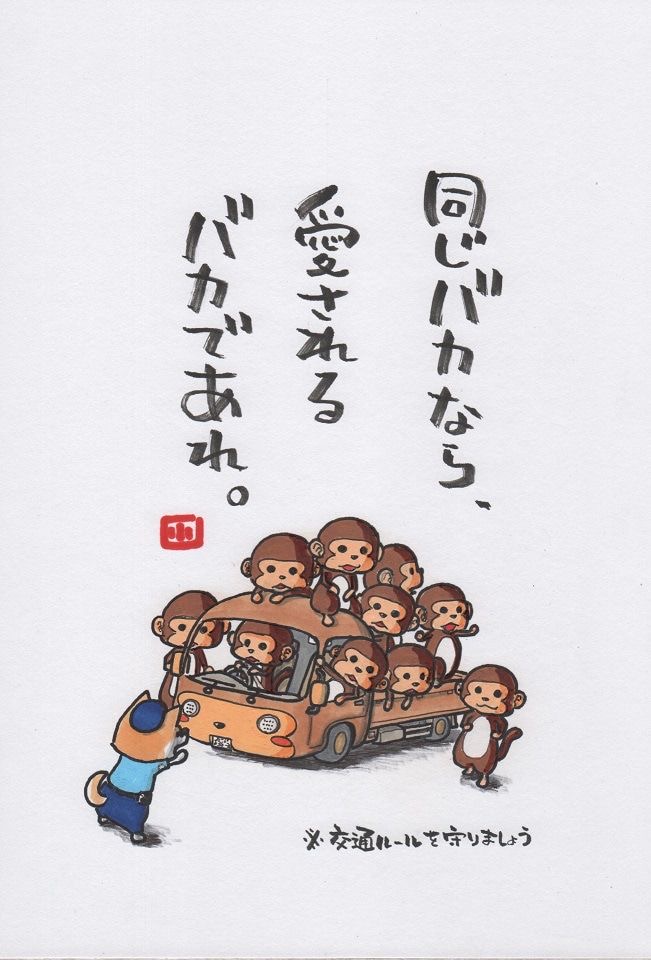 同じバカなら、
愛される
バカであれ。
※交通ルールを守りましょう